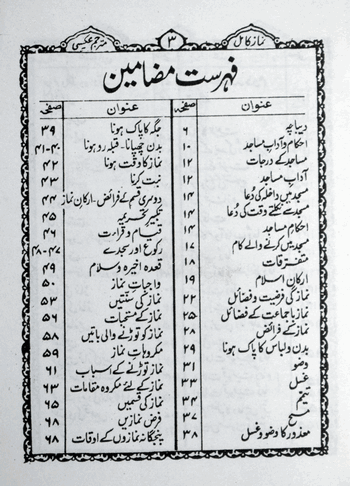 نماز کامل ۳ مترجم عکسی
فہرست مضامین
عنوان صفحہ
دیباچہ ۶
احکام و آداب مساجد ۱۰
مساجد کے درجات ۱۲
آداب مساجد ۱۲
مسجد میں داخلہ کی دعا ۱۴
مسجد سے نکلتے وقت کی دعا ۱۴
احکام مساجد ۱۴
مسجد میں کرنے والے کام ۱۷
متفرقات ۱۸
ارکان اسلام ۱۹
نماز کی فرضیت و فضائل ۲۲
نماز باجماعت کے فضائل ۲۵
نماز کے فرائض ۲۸
بدن و لباس کا پاک ہونا ۲۹
وضو ۳۱
غسل ۳۳
تیمم ۳۴
مسح ۳۷
معذور کا وضو و غسل ۳۸
عنوان صفحہ
جگہ کا پاک ہونا ۳۹
بدن چھپانا۔ قبلہ رو ہونا ۴۰-۴۱
نماز کا وقت ہونا ۴۲
نیت کرنا ۴۳
دوسری قسم کے فرائض۔ ارکان نماز ۴۴
تکبیر تحریمہ ۴۵
قیام و قراءت ۴۶
رکوع اور سجدے ۴۷-۴۸
قعدہ اخیرہ و سلام ۴۹
واجبات نماز ۵۰
نماز کی سنتیں ۵۳
نماز کے مستحبات ۵۶
نماز کو توڑنے والی باتیں ۵۸
مکروہات نماز ۵۹
نماز توڑنے کے اسباب ۶۱
نماز کے لئے مکروہ مقامات ۶۳
نماز کی قسمیں ۶۵
فرض نمازیں ۶۸
پنجگانہ نمازوں کے اوقات ۶۸